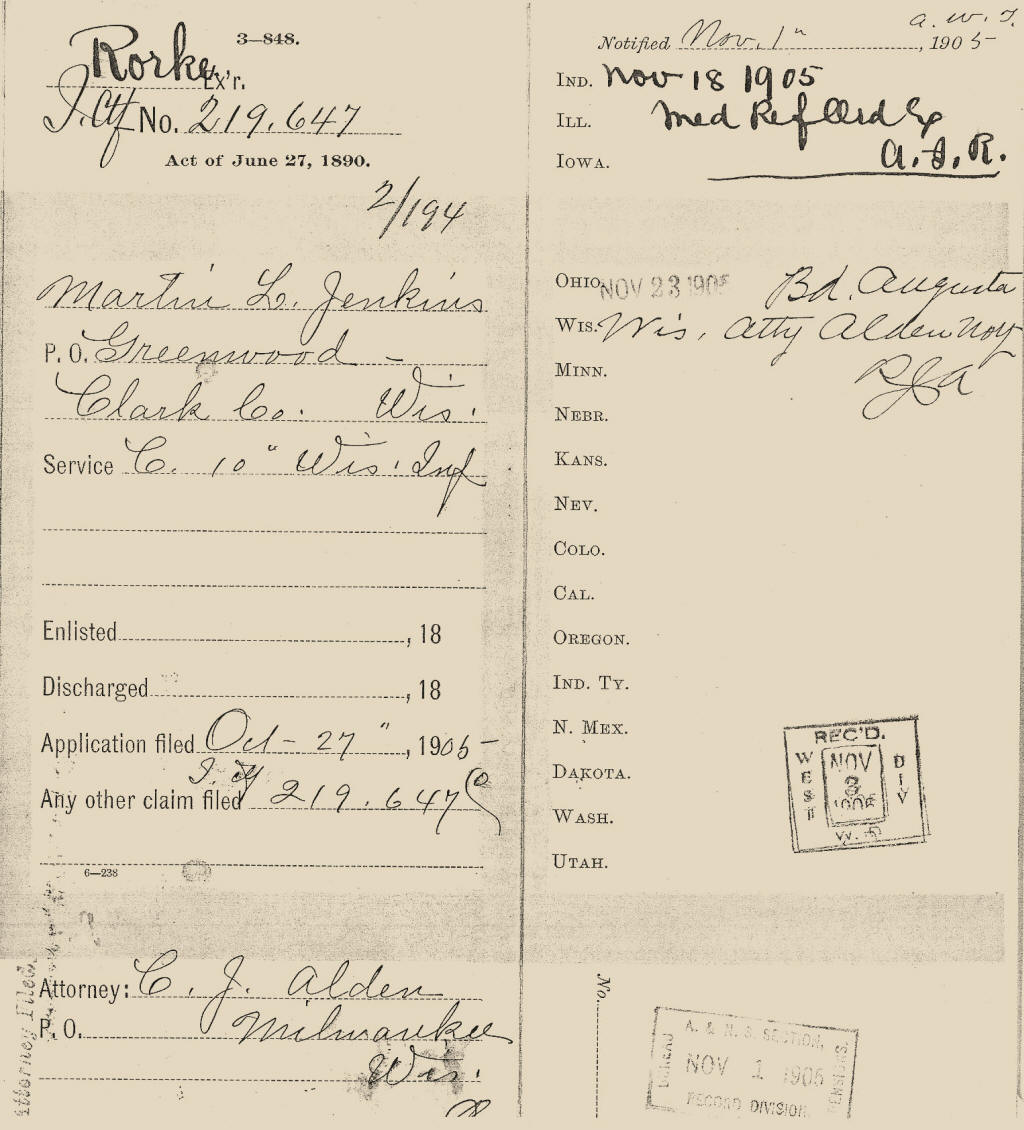 3—848.
Rorke Ex'r.
I. Ctf No. 219.647
Act of June 27, 1890.
2/194
Martin L. Jenkins
P. O. Greenwood –
Clark Co. Wis.
Service C. 10" Wis. Inf
Enlisted , 18
Discharged , 18
Application filed Oct – 27 " , 1905 –
I. Ctf
Any other claim filed 219.647
6—238
Attorney Filed.
Attorney: C. J. Alden
P. O. Milwaukee
Wis.
a. w. J.
Notified Nov. 1" , 1905 –
IND. Nov 18 1905
ILL. Med Ref Ord Ex
IOWA. A. J. R.
OHIO NOV 23 1905 Bd. Augusta
WIS. Wis. Atty Alden Not
MINN. RJA
NEBR.
KANS.
NEV.
COLO.
CAL.
OREGON.
IND. TY.
N. MEX.
DAKOTA.
WASH.
UTAH.
REC'D.
WEST DIV
NOV
3
1905
No.
A. & N. S. SECTION,
BUREAU PENSIONS.
NOV 1 1905
RECORD DIVISION